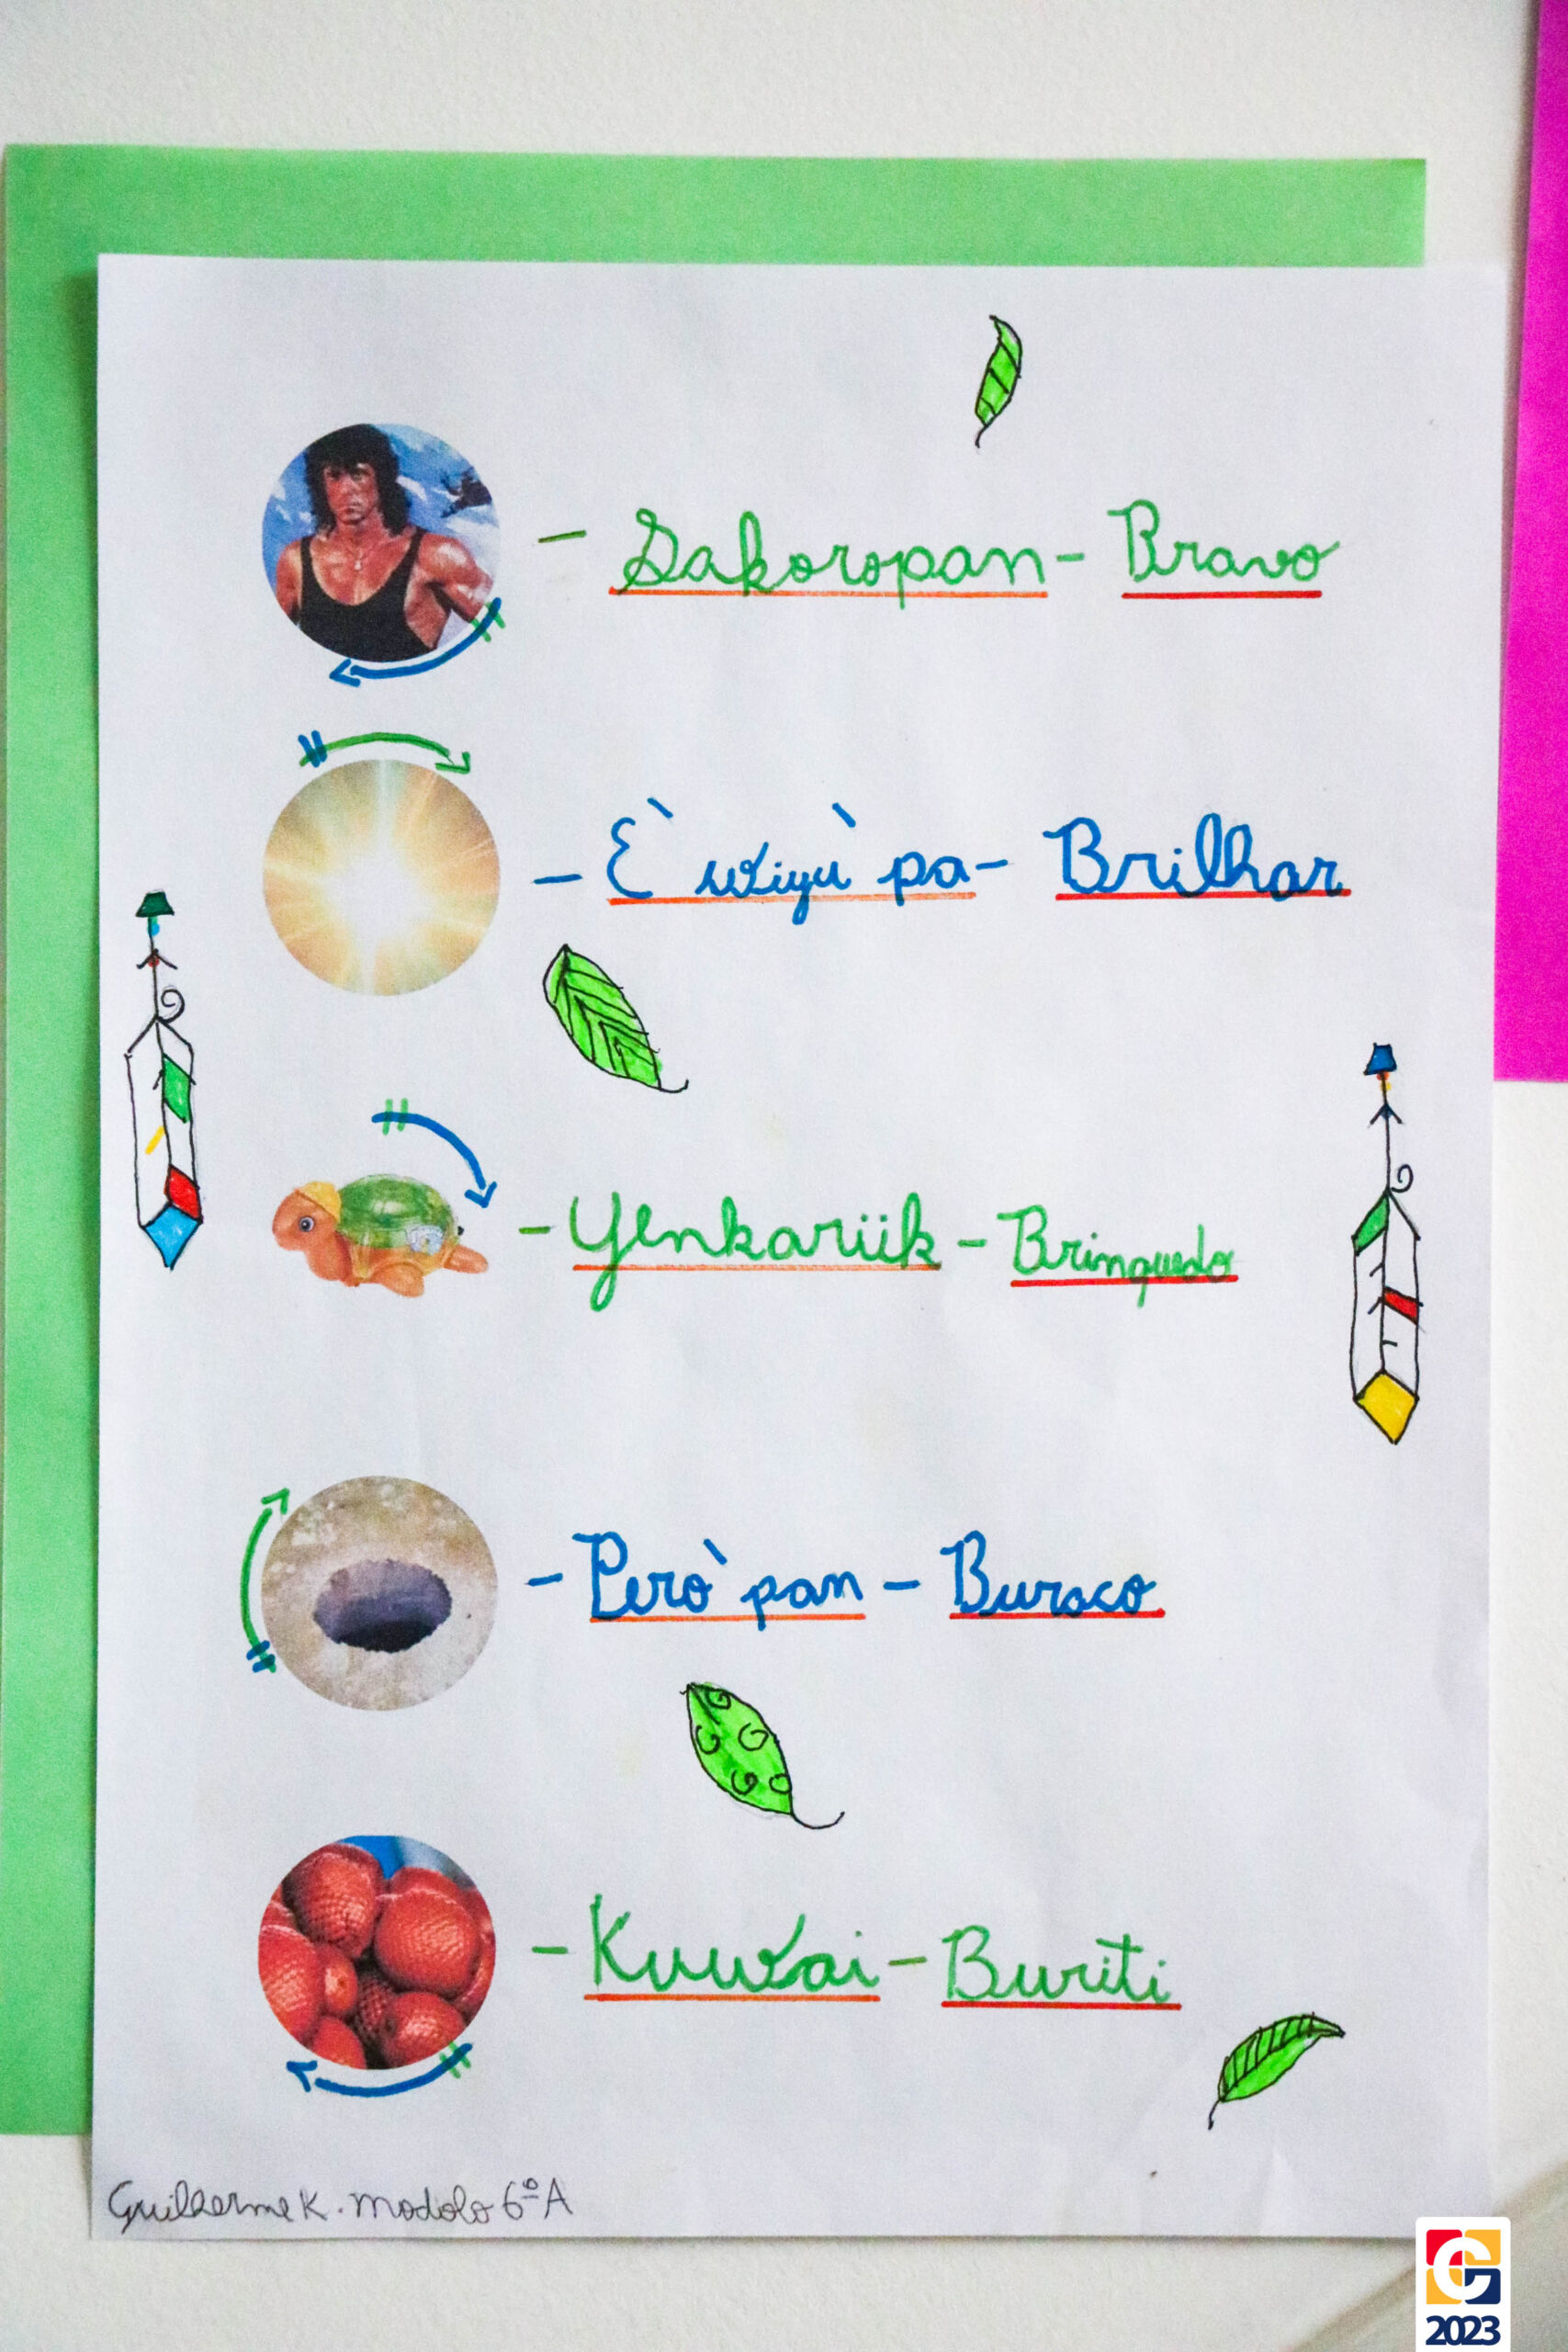 - Sakoropan - Bravo
- È wiyù pa - Brilhar
- Yenkariik - Brinquedo
- Però pan - Buraco
- Kuwai - Buriti
Guilherme K. Modolo 6º A
G
2023